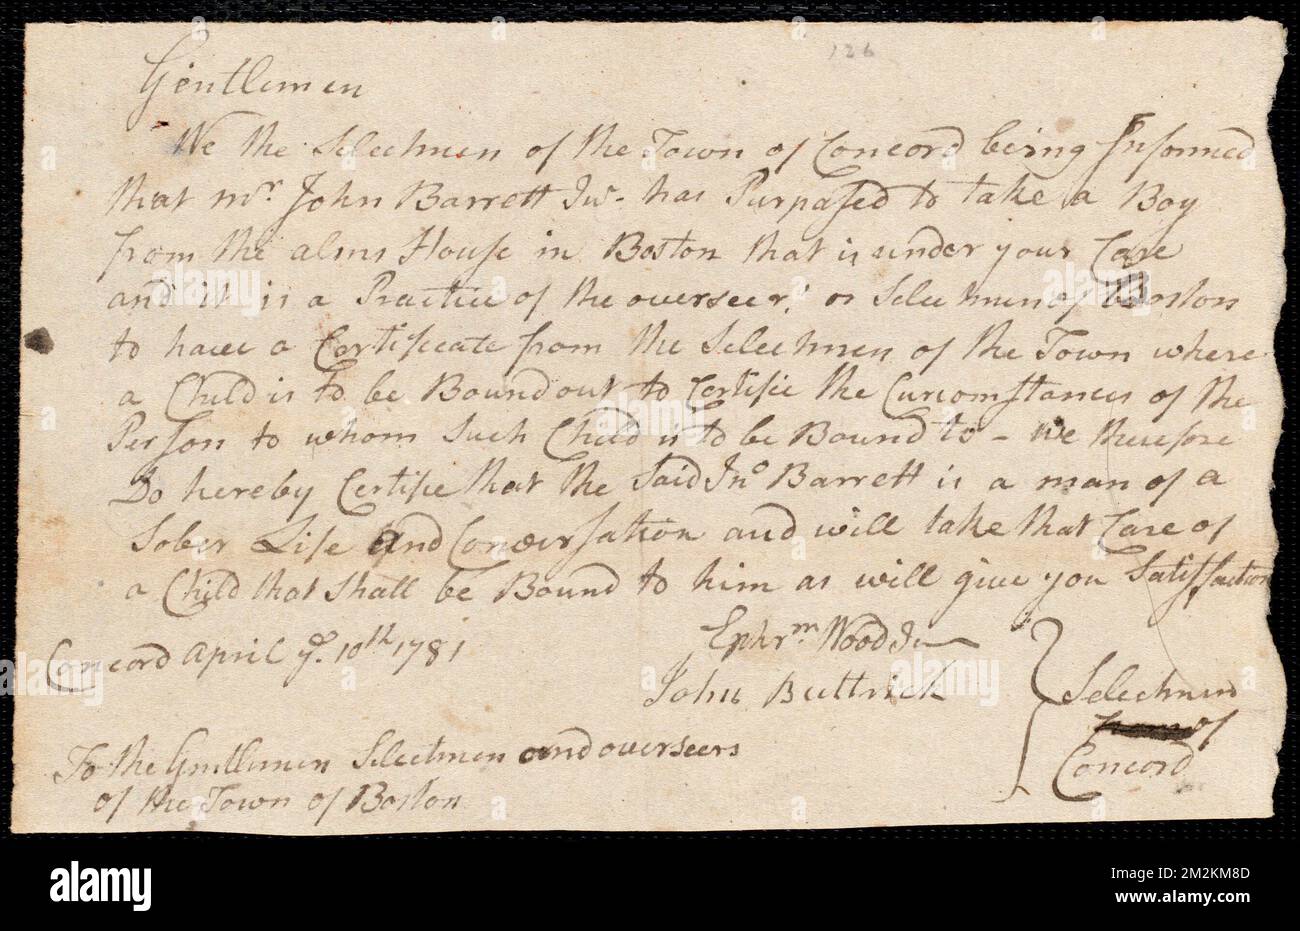 126
Gentlemen
We the Selectmen of the Town of Concord being Informed
that Mr. John Barrett Jur. has Purpased to take a Boy
from the alms House in Boston that is under your Care
and it is a Practice of the overseers or Selectmen of Boston
to have a Certificate from the Selectmen of the Town where
a Child is to be Bound out to Certifie the Curcomstances of the
Person to whom Such Child is to be Bound to - we therefore
Do hereby Certifie that the Said Jno Barrett is a man of a
Sober Life and Conversation and will take that Care of
a Child that Shall be Bound to him as will give you Satisfaction
Concord April ye. 10th 1781
Ephrm Wood Jur
John Buttrick
Selectmen
of
Concord
To the Gentlemen Selectmen and overseers
of the Town of Boston
alamy
Image ID: 2M2KM8D
www.alamy.com